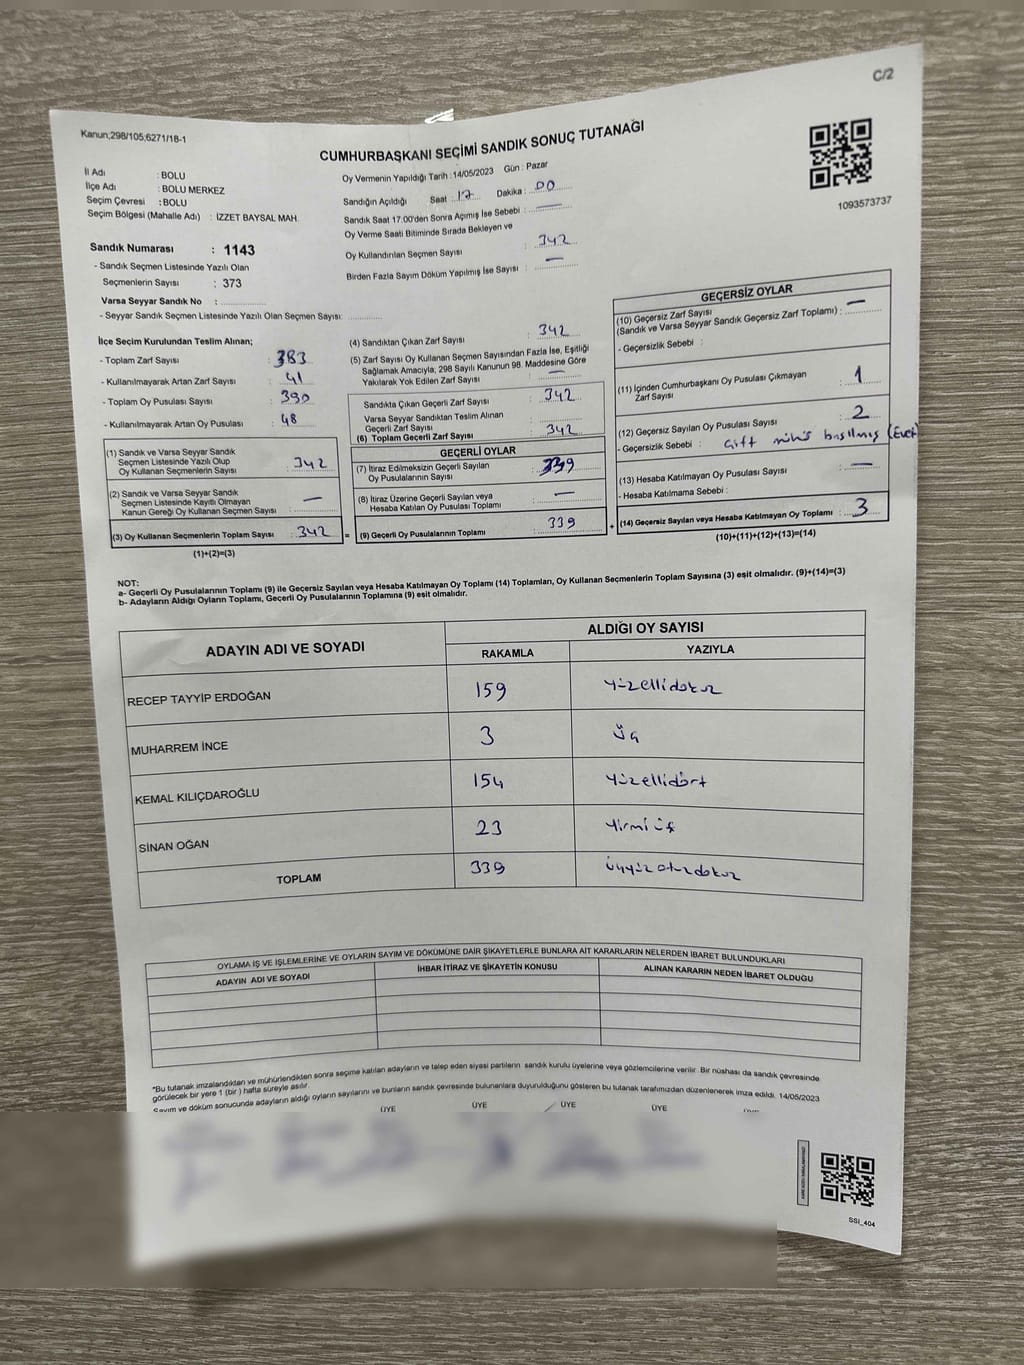 C/2
Kanun;298/105;6271/18-1
CUMHURBAŞKANI SEÇİMİ SANDIK SONUÇ TUTANAĞI
1093573737
İl Adı : BOLU
İlçe Adı : BOLU MERKEZ
Seçim Çevresi : BOLU
Seçim Bölgesi (Mahalle Adı) : İZZET BAYSAL MAH.
Sandık Numarası : 1143
- Sandık Seçmen Listesinde Yazılı Olan
Seçmenlerin Sayısı : 373
Varsa Seyyar Sandık No :
- Seyyar Sandık Seçmen Listesinde Yazılı Olan Seçmen Sayısı:
Oy Vermenin Yapıldığı Tarih : 14/05/2023 Gün : Pazar
Sandığın Açıldığı Saat : 17 Dakika : 00
Sandık Saat 17:00'den Sonra Açımış İse Sebebi : —
Oy Verme Saati Bitiminde Sırada Bekleyen ve
Oy Kullandırılan Seçmen Sayısı : 342
Birden Fazla Sayım Döküm Yapılmış İse Sayısı : —
İlçe Seçim Kurulundan Teslim Alınan;
- Toplam Zarf Sayısı : 383
- Kullanılmayarak Artan Zarf Sayısı : 41
- Toplam Oy Pusulası Sayısı : 390
- Kullanılmayarak Artan Oy Pusulası : 48
(1) Sandık ve Varsa Seyyar Sandık
Seçmen Listesinde Yazılı Olup
Oy Kullanan Seçmenlerin Sayısı : 342
(2) Sandık ve Varsa Seyyar Sandık
Seçmen Listesinde Kayıtlı Olmayan
Kanun Gereği Oy Kullanan Seçmen Sayısı : —
(3) Oy Kullanan Seçmenlerin Toplam Sayısı : 342 =
(1)+(2)=(3)
(4) Sandıktan Çıkan Zarf Sayısı : 342
(5) Zarf Sayısı Oy Kullanan Seçmen Sayısından Fazla İse, Eşitliği
Sağlamak Amacıyla, 298 Sayılı Kanunun 98. Maddesine Göre
Yakılarak Yok Edilen Zarf Sayısı : —
Sandıkta Çıkan Geçerli Zarf Sayısı : 342
Varsa Seyyar Sandıktan Teslim Alınan
Geçerli Zarf Sayısı :
(6) Toplam Geçerli Zarf Sayısı : 342
GEÇERLİ OYLAR
(7) İtiraz Edilmeksizin Geçerli Sayılan
Oy Pusulalarının Sayısı : 339
(8) İtiraz Üzerine Geçerli Sayılan veya
Hesaba Katılan Oy Pusulası Toplamı : —
(9) Geçerli Oy Pusulalarının Toplamı : 339 +
GEÇERSİZ OYLAR
(10) Geçersiz Zarf Sayısı
(Sandık ve Varsa Seyyar Sandık Geçersiz Zarf Toplamı) : —
- Geçersizlik Sebebi :
(11) İçinden Cumhurbaşkanı Oy Pusulası Çıkmayan
Zarf Sayısı : 1
(12) Geçersiz Sayılan Oy Pusulası Sayısı : 2
- Geçersizlik Sebebi : Çift mühür basılmış (Evet
(13) Hesaba Katılmayan Oy Pusulası Sayısı : —
- Hesaba Katılmama Sebebi :
(14) Geçersiz Sayılan veya Hesaba Katılmayan Oy Toplamı : 3
(10)+(11)+(12)+(13)=(14)
NOT:
a- Geçerli Oy Pusulalarının Toplamı (9) ile Geçersiz Sayılan veya Hesaba Katılmayan Oy Toplamı (14) Toplamları, Oy Kullanan Seçmenlerin Toplam Sayısına (3) eşit olmalıdır. (9)+(14)=(3)
b- Adayların Aldığı Oyların Toplamı, Geçerli Oy Pusulalarının Toplamına (9) eşit olmalıdır.
ADAYIN ADI VE SOYADI ALDIĞI OY SAYISI
RAKAMLA YAZIYLA
RECEP TAYYİP ERDOĞAN 159 yüzellidokuz
MUHARREM İNCE 3 üç
KEMAL KILIÇDAROĞLU 154 yüzellidört
SİNAN OĞAN 23 yirmiüç
TOPLAM 339 üçyüzotuzdokuz
OYLAMA İŞ VE İŞLEMLERİNE VE OYLARIN SAYIM VE DÖKÜMÜNE DAİR ŞİKAYETLERLE BUNLARA AİT KARARLARIN NELERDEN İBARET BULUNDUKLARI
ADAYIN ADI VE SOYADI İHBAR İTİRAZ VE ŞİKAYETİN KONUSU ALINAN KARARIN NEDEN İBARET OLDUĞU
"Bu tutanak imzalandıktan ve mühürlendikten sonra seçime katılan adayların ve talep eden siyasi partilerin sandık kurulu üyelerine veya gözlemcilerine verilir. Bir nüshası da sandık çevresinde
görülecek bir yere 1 (bir ) hafta süreyle asılır.
Sayım ve döküm sonucunda adayların aldığı oyların sayılarını ve bunların sandık çevresinde bulunanlara duyurulduğunu gösteren bu tutanak tarafımızdan düzenlenerek imza edildi. 14/05/2023
ÜYE ÜYE ÜYE ÜYE
SSI_404